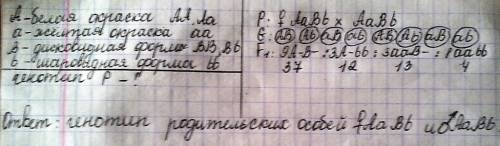 А-белая окраска АА, Аа
а-желтая окраска аа
В-дисковидная форма ВВ, Вb
b-шаровидная форма bb
генотип Р - ?
Р: ♀ АаВb x АаВb
G: АВ Аb аВ ab АВ Аb аВ ab
F₁: 9А-В- : 3А-bb : 3ааВ- : 1 ааbb
37 12 13 4
Ответ: генотип родительских особей ♀АаВb и ♂АаВb